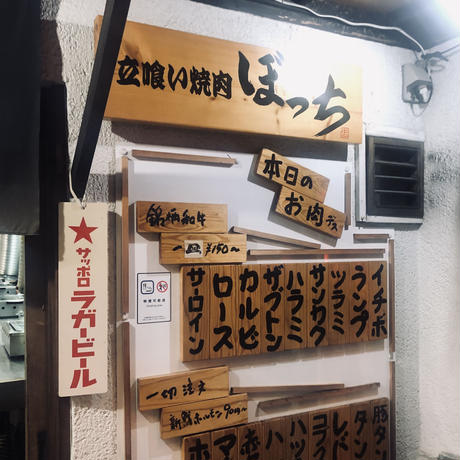 立喰い焼肉 ぼっち
本日の
お肉デス
銘柄和牛
一皿 ¥150〜
イチボ
ランプ
ツラミ
サンカク
ハラミ
ザブトン
カルビ
ロース
サロイン
★サッポロラガービール
一切注文
新鮮ホルモン90円〜
豚タン